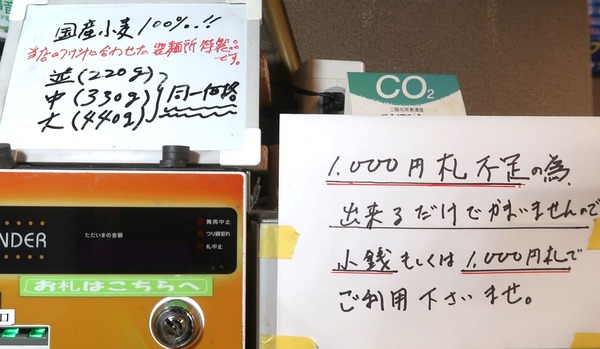 国産小麦100%.!!
当店のつけ汁に合わせた製麺所特製。。
です。
並(220g)
中(330g) 同一価格
大(440g)
CO2
二酸化炭素濃度
1.000円札不足の為、
出来るだけでかまいませんので
小銭もしくは1.000円札で
ご利用下さいませ。
NDER
ただいまの金額
発売中止
つり銭切れ
札中止
お札はこちらへ
口